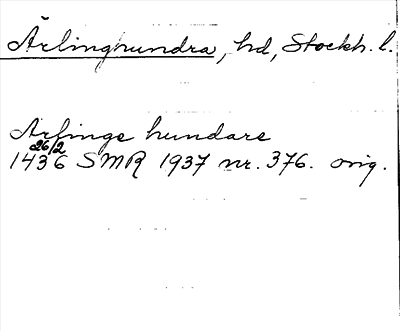 Ärlinghundra, hd, Stockh. l.
Ærlinge hundare
26/2
1436 SMR 1937 nr. 376. orig.